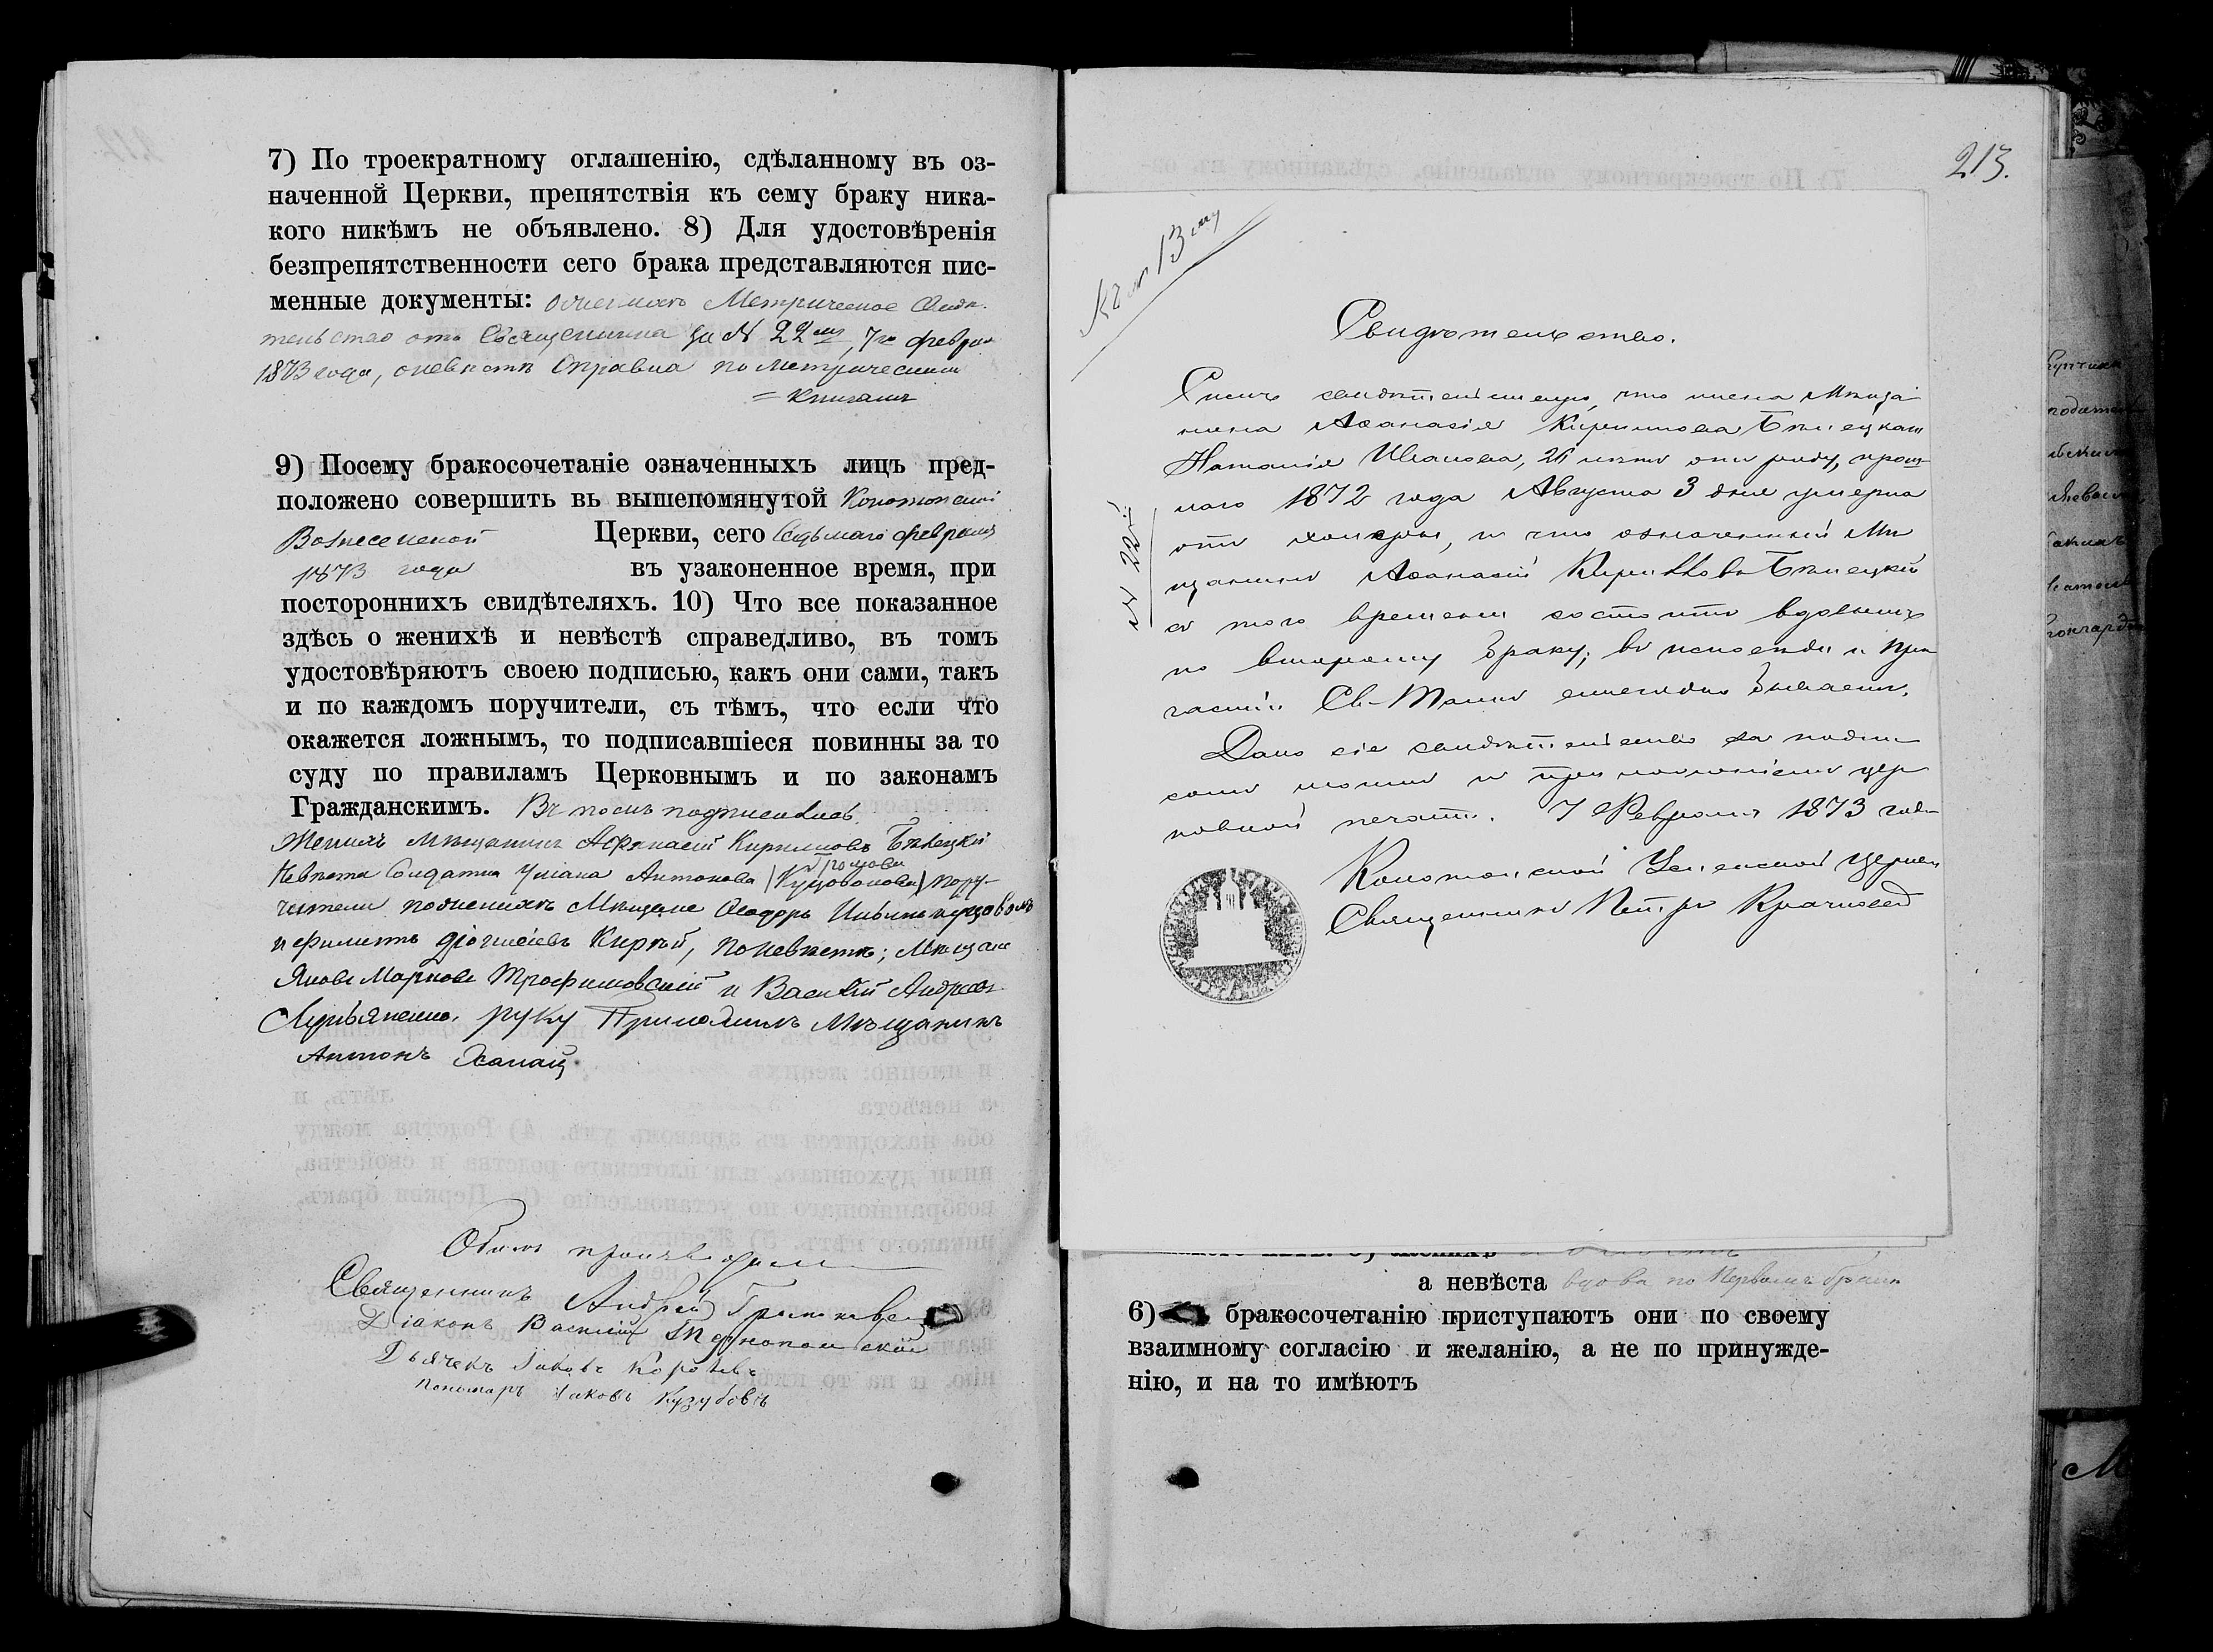 7) По троекратному оглашенію, сдѣланному въ оз-
наченной Церкви, препятствія къ сему браку ника-
кого никѣмъ не объявлено. 8) Для удостовѣренія
безпрепятственности сего брака представляются пис-
менные документы: Метрическое Свидѣ-
тельство отъ Священника за № 22м, 7го февраля
1873 года, о невѣстѣ справка по метрическимъ
= книгамъ
9) Посему бракосочетаніе означенныхъ лицъ пред-
положено совершить вь вышепомянутой Конотопской
Вознесенской Церкви, сего седьмаго февраля
1873 года въ узаконенное время, при
постороннихъ свидѣтеляхъ. 10) Что все показанное
здѣсь о женихѣ и невѣстѣ справедливо, въ томъ
удостовѣряютъ своею подписью, какъ они сами, такъ
и по каждомъ поручители, съ тѣмъ, что если что
окажется ложнымъ, то подписавшіеся повинны за то
суду по правиламъ Церковнымъ и по законамъ
Гражданскимъ.
Женихъ мѣщанинъ Афанасій Кирилловъ Бѣлецкій
Невѣста Солдатка Уліана Антонова Пору-
чители по женихѣ Мѣщане Ѳеодоръ
и Филипъ Кирѣй, по невѣстѣ; Мѣщане
Яковъ Марковъ Трофимовскій и Василій Андреевъ
Лукьяненко. руку Приложилъ Мѣщанинъ
Антонъ
Обыскъ производили
Священникъ Андрей
Діаконъ Василій Тернопольскій
Дьячекъ Іаковъ
Пономарь Іаковъ Кузубовъ
213.
Къ № 13му
№ 22й
Свидѣтельство.
Симъ свидѣтельствую, что жена Мѣща-
нина Аѳанасія Кириллова Бѣлецкаго
Наталія Иванова, 26 лѣтъ отъ роду, прош-
лаго 1872 года Августа 3 дня умерла
отъ холеры, и что означенный Мѣ-
щанинъ Аѳанасій Кирилловъ Бѣлецкій
съ того времени состоитъ вдовымъ
по второму браку; въ исповѣди и при-
частіи Св. Таинъ ежегодно бываетъ.
Дано сіе свидѣтельство за подпи-
сомъ моимъ и при приложеніемъ цер-
ковной печати. 7 Февраля 1873 года
Конотопской Успенской церкви
Священникъ Петръ
а невѣста вдова по первомъ бракѣ
6) бракосочетанію приступаютъ они по своему
взаимному согласію и желанію, а не по принужде-
нію, и на то имѣютъ